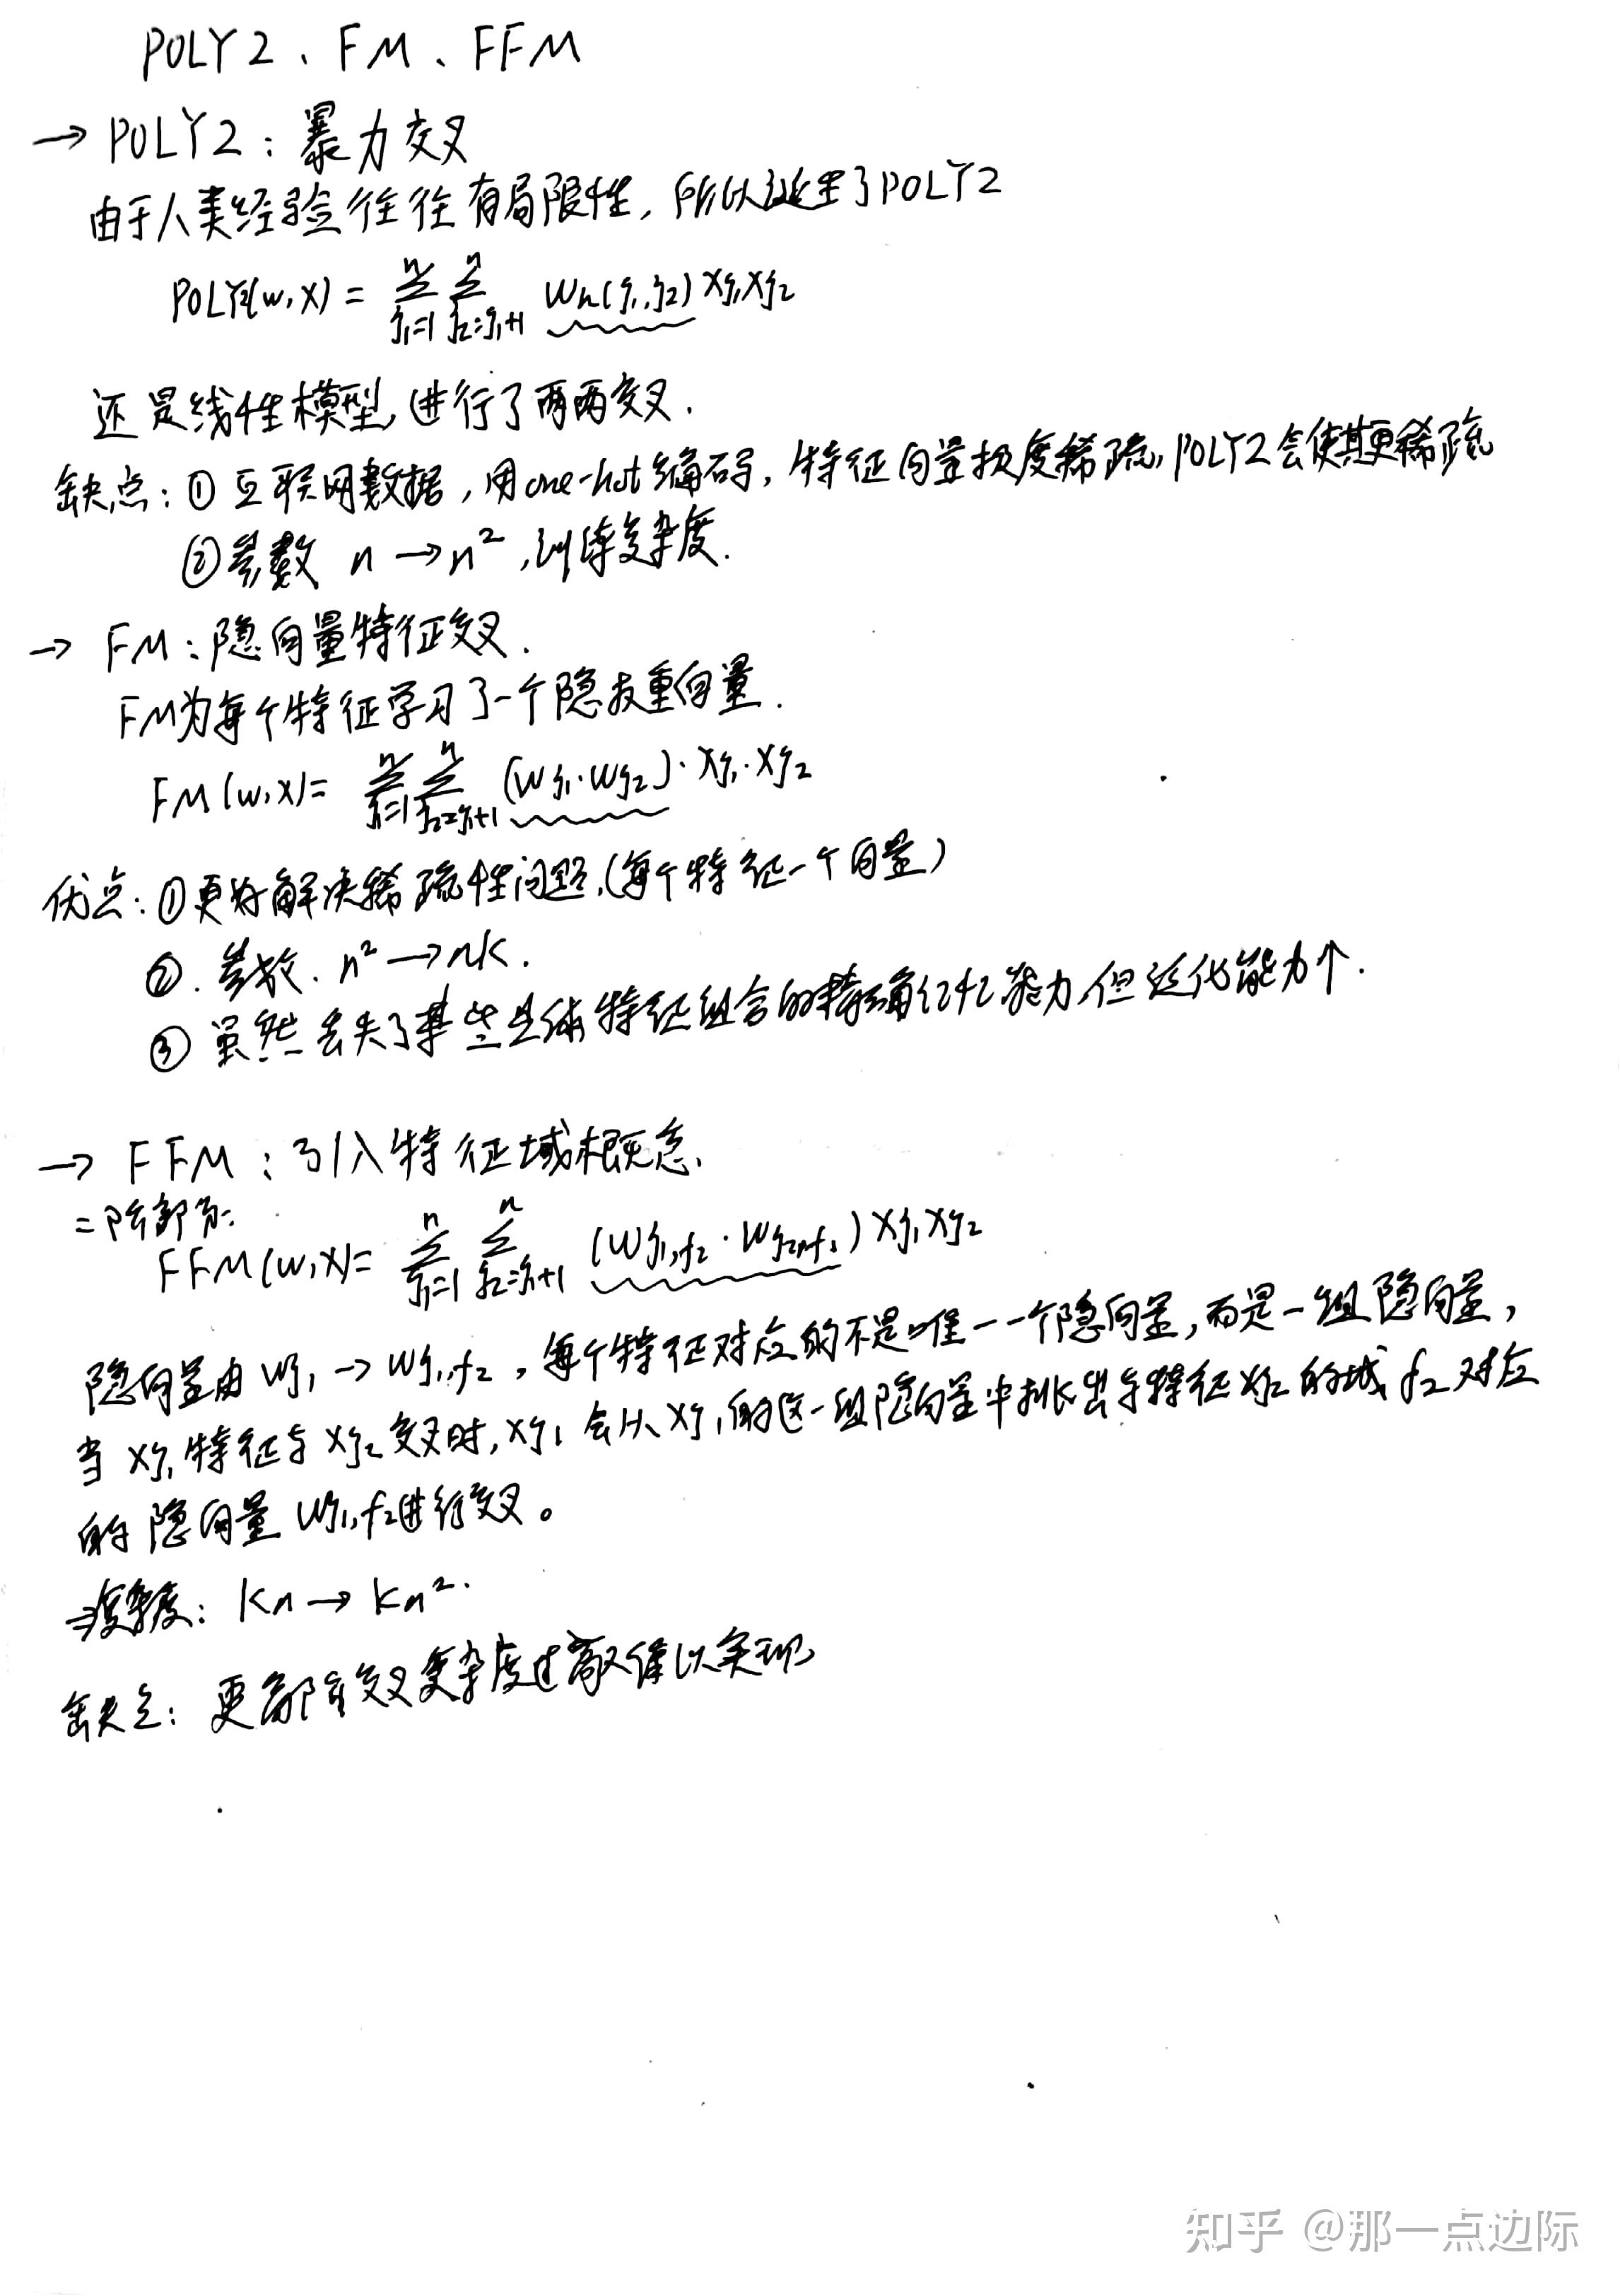 POLY2、FM、FFM
→ POLY2：暴力交叉
由于人类经验往往有局限性，所以诞生了POLY2
POLY2(w,x) = ∑_{j1=1}^{n} ∑_{j2=j1+1}^{n} w_h(j1,j2) x_{j1} x_{j2}
还是线性模型，进行了两两交叉．
缺点：① 互联网数据，用one-hot编码，特征向量极度稀疏，POLY2会使其更稀疏
② 参数 n → n²，训练复杂度．
→ FM：隐向量特征交叉．
FM为每个特征学习了一个隐权重向量．
FM(w,x) = ∑_{j1=1}^{n} ∑_{j2=j1+1}^{n} (w_{j1}·w_{j2})·x_{j1}·x_{j2}
优点：① 更好解决稀疏性问题．(每个特征一个向量)
②．参数．n² → nk．
③ 虽然丢失了某些具体特征组合的精确记忆能力，但泛化能力↑．
→ FFM：引入特征域概念．
二阶部分：
FFM(w,x) = ∑_{j1=1}^{n} ∑_{j2=j1+1}^{n} (w_{j1,f2}·w_{j2,f1}) x_{j1} x_{j2}
隐向量由 w_{j1} → w_{j1,f2}，每个特征对应的不是唯一一个隐向量，而是一组隐向量，
当 x_{j1} 特征与 x_{j2} 交叉时，x_{j1} 会从 x_{j1} 的这一组隐向量中挑出与特征 x_{j2} 的域 f2 对应
的隐向量 w_{j1,f2} 进行交叉。
⇒复杂度：kn → kn²．
缺点：更高阶交叉复杂度过高，难以实现
知乎 @那一点边际